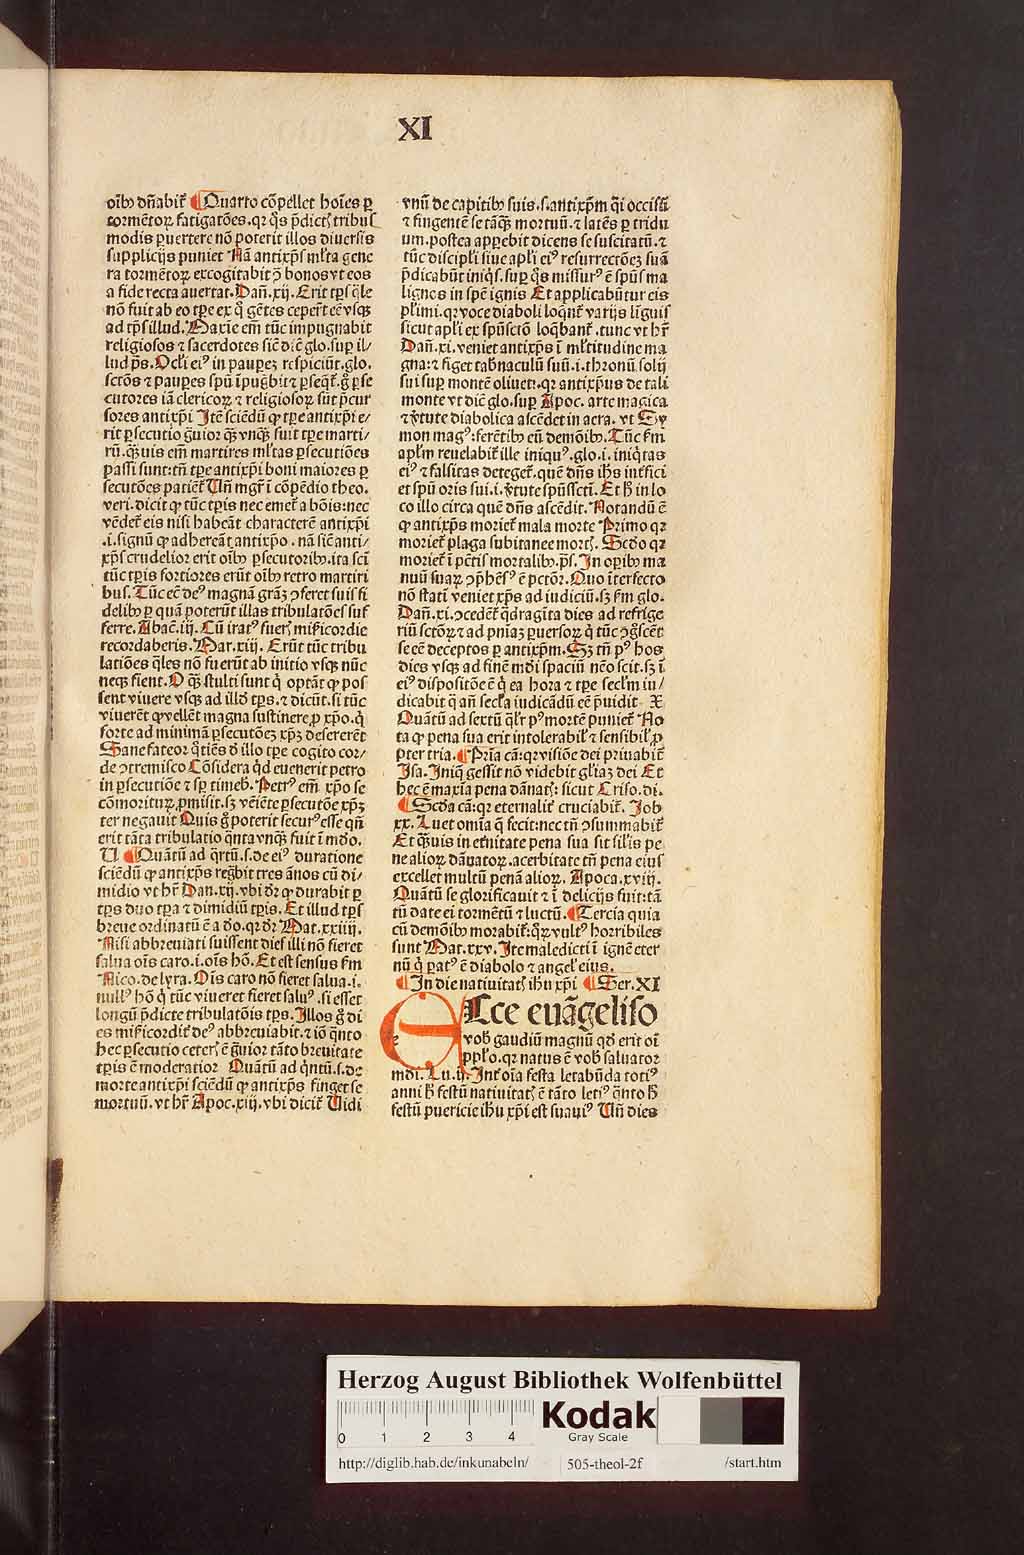 XI
oībꝯ dn̄abit᷑ ¶ Quarto cōpellet hoīes ꝑ
tormētoꝝ fatigatōes. qꝛ q̄s p̄dictꝭ tribuſ
modis ꝑuertere nō poterit illos diuersis
supplicijs puniet Nā antixp̄s ml̓ta gene
ra tormētoꝝ excogitabit ꝯ bonos vt eos
a fide recta auertat. Dan̄. xij. Erit tp̄s q̄le
nō fuit ab eo tp̄e ex q̊ gētes ceper̄t eē vsqꝫ
ad tp̄s illud. Maxīe em̄ tūc impugnabit
religiosos ⁊ sacerdotes sic̄ dic̄ glo. suꝑ il⸗
lud ps̄. Ocl̓i ei⁹ in paupeꝫ respiciūt. glo.
sctōs ⁊ pauꝑes spū īpugbit ⁊ ꝑseq̄t᷑. g̊ ꝑse
cutores iā clericoꝝ ⁊ religiosoꝝ sūt p̄cur
sores antixp̄i Itē sciēdū ꝙ tp̄e antixp̄i e⸗
rit ꝑsecutio g̊uior qꝫ vnqꝫ fuit tp̄e marti⸗
rū. qꝫuis em̄ martires ml̓tas ꝑsecutiōes
passi sunt: tn̄ tp̄e antixp̄i boni maiores ꝑ
secutōes patiēt᷑ Un̄ mgr̄ ī cōpēdio theo.
veri. dicit ꝙ tūc tp̄is nec emet᷑ a bōis: nec
vēdet᷑ eis nisi habeāt characterē antixp̄i
.i. signū ꝙ adhereāt antixp̄o. nā sic̄ anti⸗
xp̄s crudelior erit oībꝯ ꝑsecutoribꝯ. ita sc̄i
tūc tp̄is fortiores erūt oībꝯ retro martiri
bus. Tūc eē de⁹ magnā grāꝫ ꝯferet suis fi
delibꝯ ꝑ quā poterūt illas tribulatōes suf
ferre. Abac̄. iij. Cū irat⁹ fuerꝭ mīẜicordie
recordaberis. Mar. xiij. Erūt tūc tribu
latiōes q̄les nō fuerūt ab initio vsqꝫ nūc
neqꝫ fient. O qꝫ stulti sunt q̇ optāt ꝙ pos
sent viuere vsqꝫ ad illd̓ tp̄s. ⁊ dicūt. si tūc
viuerēt ꝙ vellēt magna sustinere ꝓ xp̄o. q̇
forte ad minimā ꝑsecutōeꝫ xp̄ꝫ desererēt
Sane fateor q̄tiēs d̓ illo tp̄e cogito cor⸗
de ꝯtremisco Cōsidera q̇d euenerit petro
in ꝑsecutiōe ⁊ sꝑ timebꝭ. Petr⁹ em̄ xp̄o se
cōmorituꝝ ꝓmisit. sꝫ vēiēte ꝑsecutōe xp̄ꝫ
ter negauit Quis g̊ poterit secur⁹ esse qn̄
erit tāta tribulatio q̄nta vnqꝫ fuit ī mōdo.
U ¶ Quātū ad q̄rtū. s. de ei⁹ duratione
sciēdū ꝙ antixp̄s regbit tres ānos cū di⸗
midio vt hr̄ Dan. xij. vbi dr̄ ꝙ durabit ꝑ
tp̄s duo tp̄a ⁊ dimidiū tp̄is. Et illud tp̄s
breue ordinatū ē a do. qꝛ dr̄ Mat. xxiiij.
Nisi abbreuiati fuissent dies illi nō fieret
salua oīs caro. i. oīs hō. Et est sensus ẜm
Nico. de lyra. Oīs caro nō fieret salua. i.
null⁹ hō q̇ tūc viueret fieret salu⁹. si esset
longū p̄dicte tribulatōis tp̄s. Illos g̊ di
es mīẜicordit᷑ de⁹ abbreuiabit. ⁊ iō q̄nto
hec ꝑsecutio ceterꝭ ē g̊uior tāto breuitate
tp̄is ē moderatior Quātū ad q̇ntū. s. de
morte antixp̄i sciēdū ꝙ antixp̄s finget se
mortuū. vt hr̄ Apoc. xiij. vbi dicit᷑ Uidi
vnū de capitibꝯ suis. s. antixp̄m q̄i occisū
⁊ fingentē se tāqꝫ mortuū. ⁊ latēs ꝑ tridu
um. postea apꝑebit dicens se suscitatū. ⁊
tūc discipl̓i siue apl̓i ei⁹ resurrectōeꝫ suā
p̄dicabūt iniq̇s. suꝑ q̊s missur⁹ ē spūs ma
lignos in spē ignis Et applicabūtur eis
pl̓imi. qꝛ voce diaboli loqt᷑ varijs līguis
sicut apl̓i ex spūsctō loqbant᷑. tunc vt hr̄
Dan̄. xi. veniet antixp̄s ī ml̓titudine ma
gna: ⁊ figet tab̓naculū suū. i. thronū solij
sui suꝑ montē oliueti. qꝛ antixp̄us de tali
monte vt dic̄ glo. suꝑ Apoc. arte magica
⁊ v̓tute diabolica ascēdet in aera. vt Sy
mon mag⁹: ferētibꝯ eū demōibꝯ. Tūc ẜm
apl̓m reuelabit᷑ ille iniqu⁹. glo. i. iniqtas
ei⁹ ⁊ falsitas deteget᷑. quē dn̄s ih̄s int̓fici
et spū oris sui. i. v̓tute spūsscti. Et h̄ in lo
co illo circa quē dn̄s ascēdit. Notandū ē
ꝙ antixp̄s moriet᷑ mala morte Primo qꝛ
moriet᷑ plaga subitanee mortꝭ. Scdo qꝛ
moriet᷑ ī pctīs mortalibꝯ. ps̄. In oꝑibꝯ ma
nuū suaꝝ ꝯp̄hēs⁹ ē pctōr. Quo īterfecto
nō statī veniet xp̄s ad iudiciū. sꝫ ẜm glo.
Dan̄. xi. ꝯcedēt᷑ q̄dragīta dies ad refrige
riū sctōꝝ ⁊ ad pn̄iaꝫ ꝑuersoꝝ q̇ tūc ꝯg̊scēt
se eē deceptos ꝑ antixp̄m. Sꝫ tn̄ p⁹ hos
dies vsqꝫ ad finē mdi spaciū nēo scit. sꝫ ī
ei⁹ dispositōe ē q̄ ea hora ⁊ tp̄e secl̓m iu⸗
dicabit q̄ an̄ secl̓a iudicādū eē p̄uidit X
Quātū ad sextū ql̓r p⁹ mortē puniet᷑ No
ta ꝙ pena sua erit intolerabil᷑ ⁊ sensibil᷑ ꝓ
pter tria. ¶ Prīa cā: qꝛ visiōe dei priuabit᷑
Isa. Iniq̄ gessit nō videbit gl̓iaꝫ dei Et
hec ē maxīa pena dānatꝭ: sicut Criso. di.
¶ Scda cā: qꝛ eternalit᷑ cruciabit᷑. Job
xx. Luet omīa q̄ fecit: nec tn̄ ꝯsummabit᷑
Et qꝫuis in et̓nitate pena sua sit sil̓is pe
ne alioꝝ dānatoꝝ. acerbitate tn̄ pena eius
excellet multū penā alioꝝ. Apoca. xviij.
Quātū se glorificauit ⁊ ī delicijs fuit: tā
tū date ei tormētū ⁊ luctū. ¶ Tercia quia
cū demōibꝯ morabit᷑: qꝝ vult⁹ horribiles
sunt Mat. xxv. Ite maledicti ī ignē eter
nū q̇ ꝑat⁹ ē diabolo ⁊ angel̓ eius.
¶ In die natiuitatꝭ ih̄u xp̄i ¶ Ser. XI
ECce euāgeliso
vob̓ gaudiū magnū qd̓ erit oī
ppl̓o. qꝛ natus ē vob̓ saluator
mdi. Lu. ij. Int᷑ oīa festa letabūda toti⁹
anni h̄ festū natiuitatꝭ ē tāto leti⁹ q̄nto h̄
festū puericie ih̄u xp̄i est suaui⁹ Un̄ dies
Herzog August Bibliothek Wolfenbüttel
0 1 2 3 4
Kodak
Gray Scale
http://diglib.hab.de/inkunabeln/ 505-theol-2f /start.htm